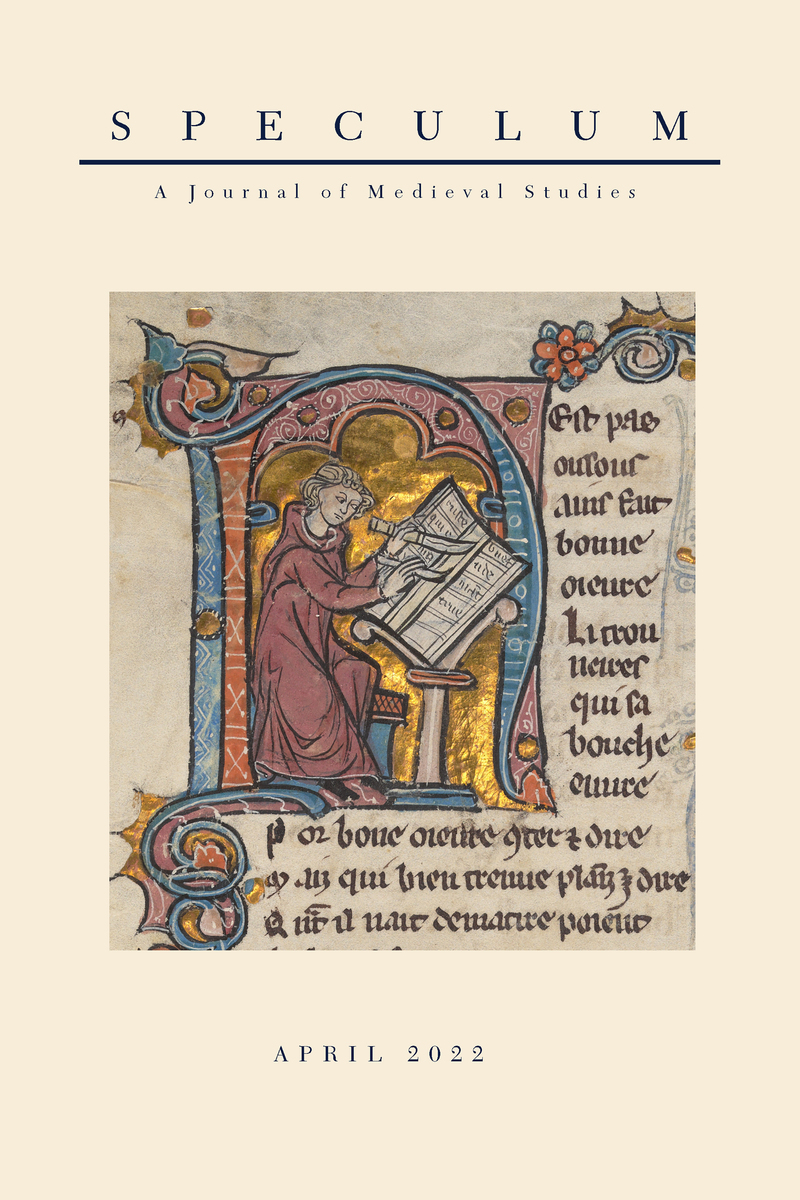 SPECULUM
A Journal of Medieval Studies
Est pas
oisous
ains fait
bonne
oieure
Li trou
ueires
qui sa
bouche
euure
P or bone oieure 9ter ⁊ dire
M ais qui bien treuue dire
Q nt il nait dematire poient
APRIL 2022